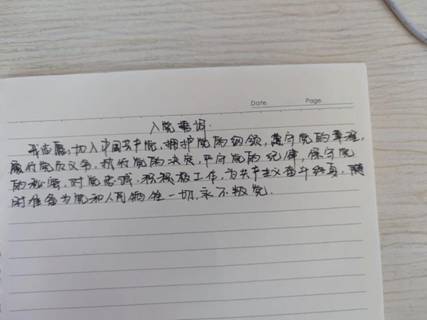 Date. Page.
入党誓词
我志愿加入中国共产党,拥护党的纲领,遵守党的章程,
履行党员义务,执行党的决定,严守党的纪律,保守党
的秘密,对党忠诚,积极工作,为共产主义奋斗终身,随
时准备为党和人民牺牲一切,永不叛党。